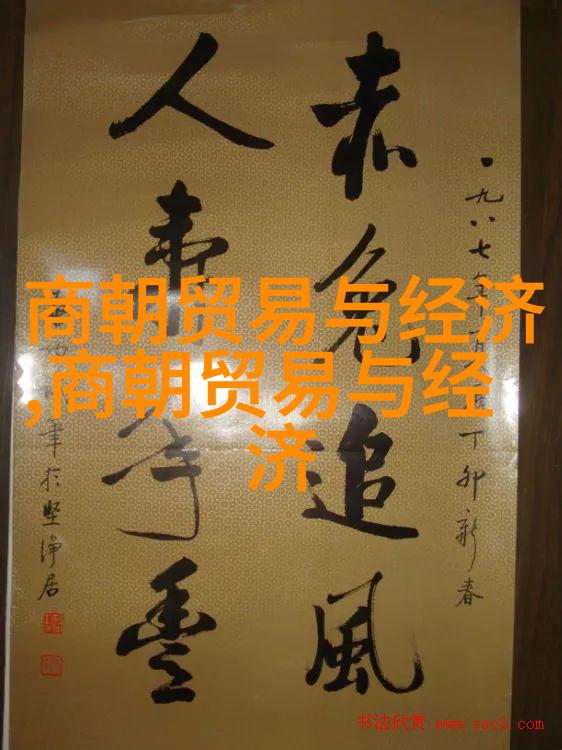 商朝贸易与经济
,商朝贸易与经
济
一九八七年
丁卯新春
赤兔追風
人寿年豊
於坚净居
书法欣赏 www.yac8.com